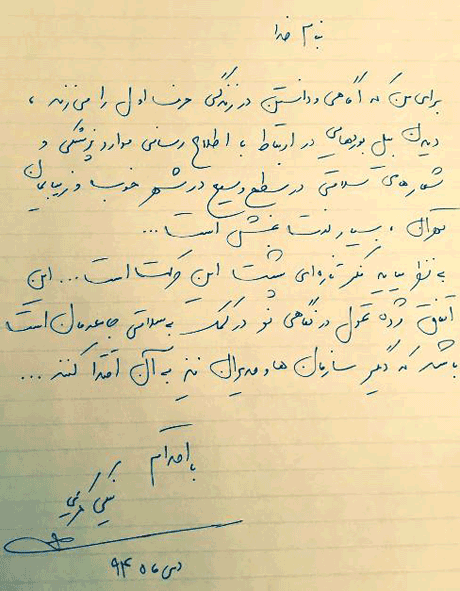 بنام خدا
برای من که آگاهی و دانستن در زندگی حرف اول را می زند ،
دیدن بیل بوردهایی در ارتباط با اطلاع رسانی موارد پزشکی و
شعارهای سلامتی در سطح وسیع در شهر خوب و زیبایمان
تهران ، بسیار لذت بخش است ...
به نظر میاید فکر تازه ای پشت این حرکت است ... این
اتفاق مژده تحول در نگاهی نو در کمک به سلامتی جامعه مان است
باشد که دیگر سازمان ها و مدیران نیز به آن اقتدا کنند ...
با احترام
نیکی کریمی
دی ماه ۹۴